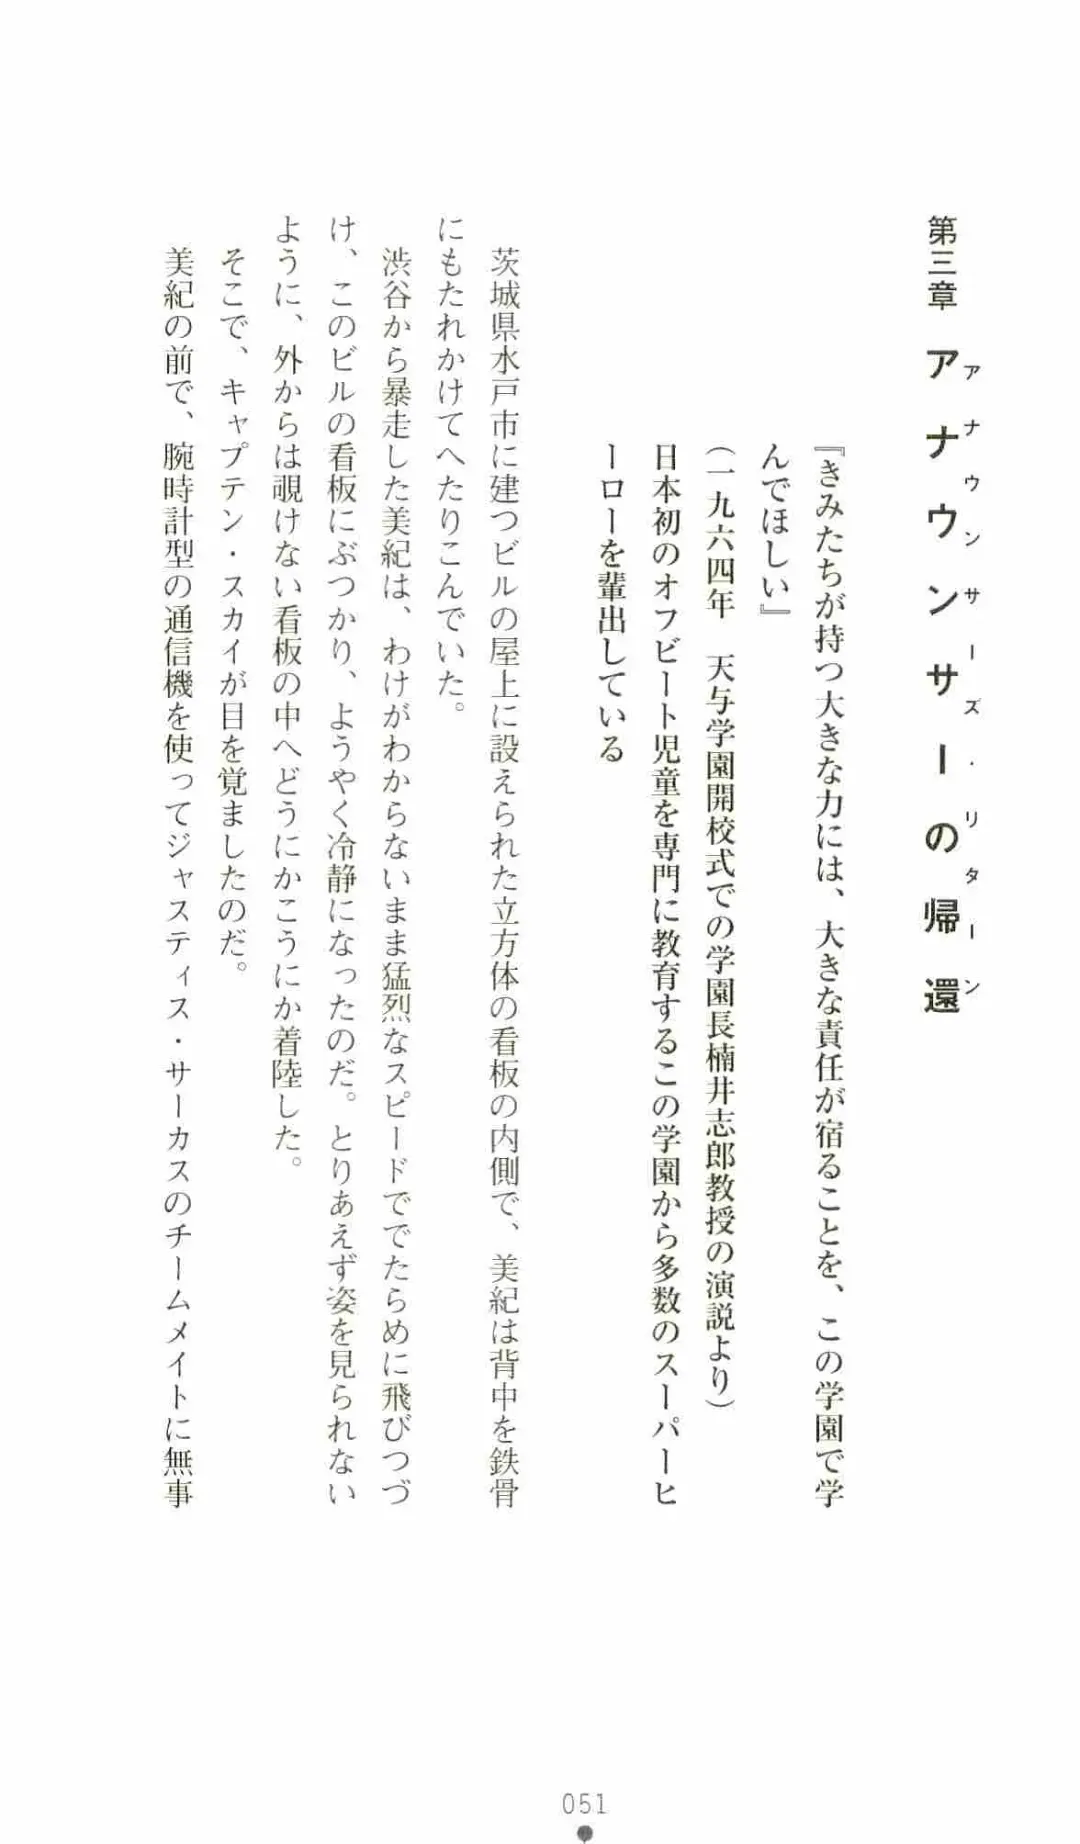 第三章 アナウンサーの帰還
アナウンサーズ・リターン
『きみたちが持つ大きな力には、大きな責任が宿ることを、この学園で学
んでほしい』
(一九六四年　天与学園開校式での学園長楠井志郎教授の演説より)
日本初のオフビート児童を専門に教育するこの学園から多数のスーパーヒ
ーローを輩出している
茨城県水戸市に建つビルの屋上に設えられた立方体の看板の内側で、美紀は背中を鉄骨
にもたれかけてへたりこんでいた。
渋谷から暴走した美紀は、わけがわからないまま猛烈なスピードででたらめに飛びつづ
け、このビルの看板にぶつかり、ようやく冷静になったのだ。とりあえず姿を見られない
ように、外からは覗けない看板の中へどうにかこうにか着陸した。
そこで、キャプテン・スカイが目を覚ましたのだ。
美紀の前で、腕時計型の通信機を使ってジャスティス・サーカスのチームメイトに無事
051